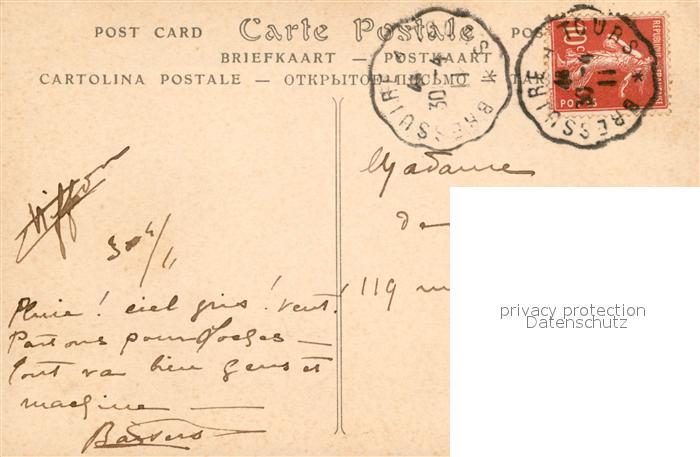 POST CARD Carte Postale POS
BRIEFKAART — POSTKAART
CARTOLINA POSTALE — ОТКРЫТОЕ ПИСЬМО
BRESSUIRE A TOURS *
30-4
11
BRESSUIRE A TOURS *
30-4
11
10c
REPUBLIQUE FRANÇAISE
POSTES
Madame
de
119
30 4/11
Pluie ! ciel gris ! vent.
Partons pour Loches —
Tout va bien gens et
machine —
privacy protection
Datenschutz